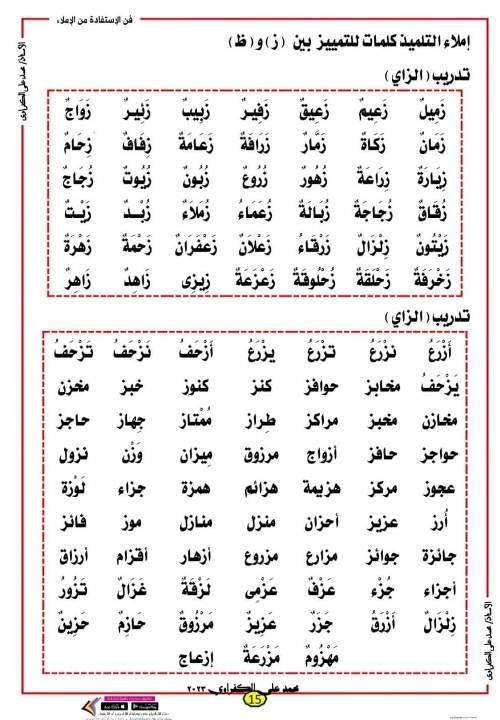 فن الإستفادة من الإملاء
إملاء التلميذ كلمات للتمييز بين (ز) و (ظ)
تدريب (الزاي)
زَمِيلٌ زَعيمٌ زَعيقٌ زَفيرٌ زَبِيبٌ زَئيرٌ زَوَاجٌ
زَمَانٌ زَكَاةٌ زَمَّارٌ زَرَافَةٌ زَعَامَةٌ زِفَافٌ زِحَامٌ
زِيَارَةٌ زِرَاعَةٌ زُهُورٌ زُرُوعٌ زُبُونٌ زُيُوتٌ زُجَاجٌ
زُقَاقٌ زُجَاجَةٌ زُبَالَةٌ زُعَمَاءُ زُمَلَاءُ زُبْدٌ زَيْتٌ
زَيْتُونٌ زِلْزَالٌ زَرْقَاءُ زَعْلَانٌ زَعْفَرَانٌ زَحْمَةٌ زَهْرَةٌ
زَخْرَفَةٌ زَحْلَقَةٌ زُحْلُوقَةٌ زَعْزَعَةٌ زِيزِى زَاهِدٌ زَاهِرٌ
تدريب (الزاي)
أَزْرَعُ نَزْرَعُ تَزْرَعُ يَزْرَعُ أَزْحَفُ نَزْحَفُ تَزْحَفُ
يَزْحَفُ مخابز حوافز كنز كنوز خبز مخزن
مخازن مخبز مراكز طِراز مُمْتاز جِهاز حاجز
حواجز حافز أزواج مرزوق مِيزان وَزْن نزول
عجوز مركز هزيمة هزائم همزة جزاء لَوْزة
أُرز عزيز أحزان منزل منازل موز فائز
جائزة جوائز مزارع مزروع أزهار أقزام أرزاق
أجزاء جُزْء عَزْفٌ عَزْمِى لَزْقَةٌ غَزَالٌ تَزُورُ
زِلْزَالٌ أَزْرَقُ جَزَرٌ عَزِيزٌ مَرْزُوقٌ حَازِمٌ حَزِينٌ
مَهْزُومٌ مَزْرَعَةٌ إزعاج
محمد على الكفراوي ٢٠٢٣
15